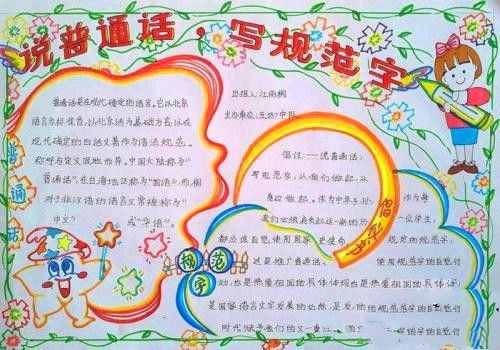 说普通话，写规范字
普通话
普通话是在现代确定的语言。它以北京
语言为标准音，以北京话为基础方言，以在
现代确定的白话文著作为语法规范。
称呼与定义因地而异。中国大陆称为“
普通话”，在台湾地区称为“国语”，而相
对于非汉语的语言又常被称为“
中文” 或“华语”。
出报人：江雨桐
主办单位：五 中队
倡议：——说普通话，
写规范字，从我们做起，从
身边做起。作为中华子孙， 作为每
我们必须肩负起这一新的历 一位学生，
都应该自觉使用国家 史使命 规定的规范字，
这是推广普通话、 使用规范字的自觉行
动，也是热爱祖国的具体体现也是热爱祖国的具体体
是国家语言文字发展的必然，是 的规范字的自觉行
时代赋予我们的又一重任 的自觉行
倡议书
范
字